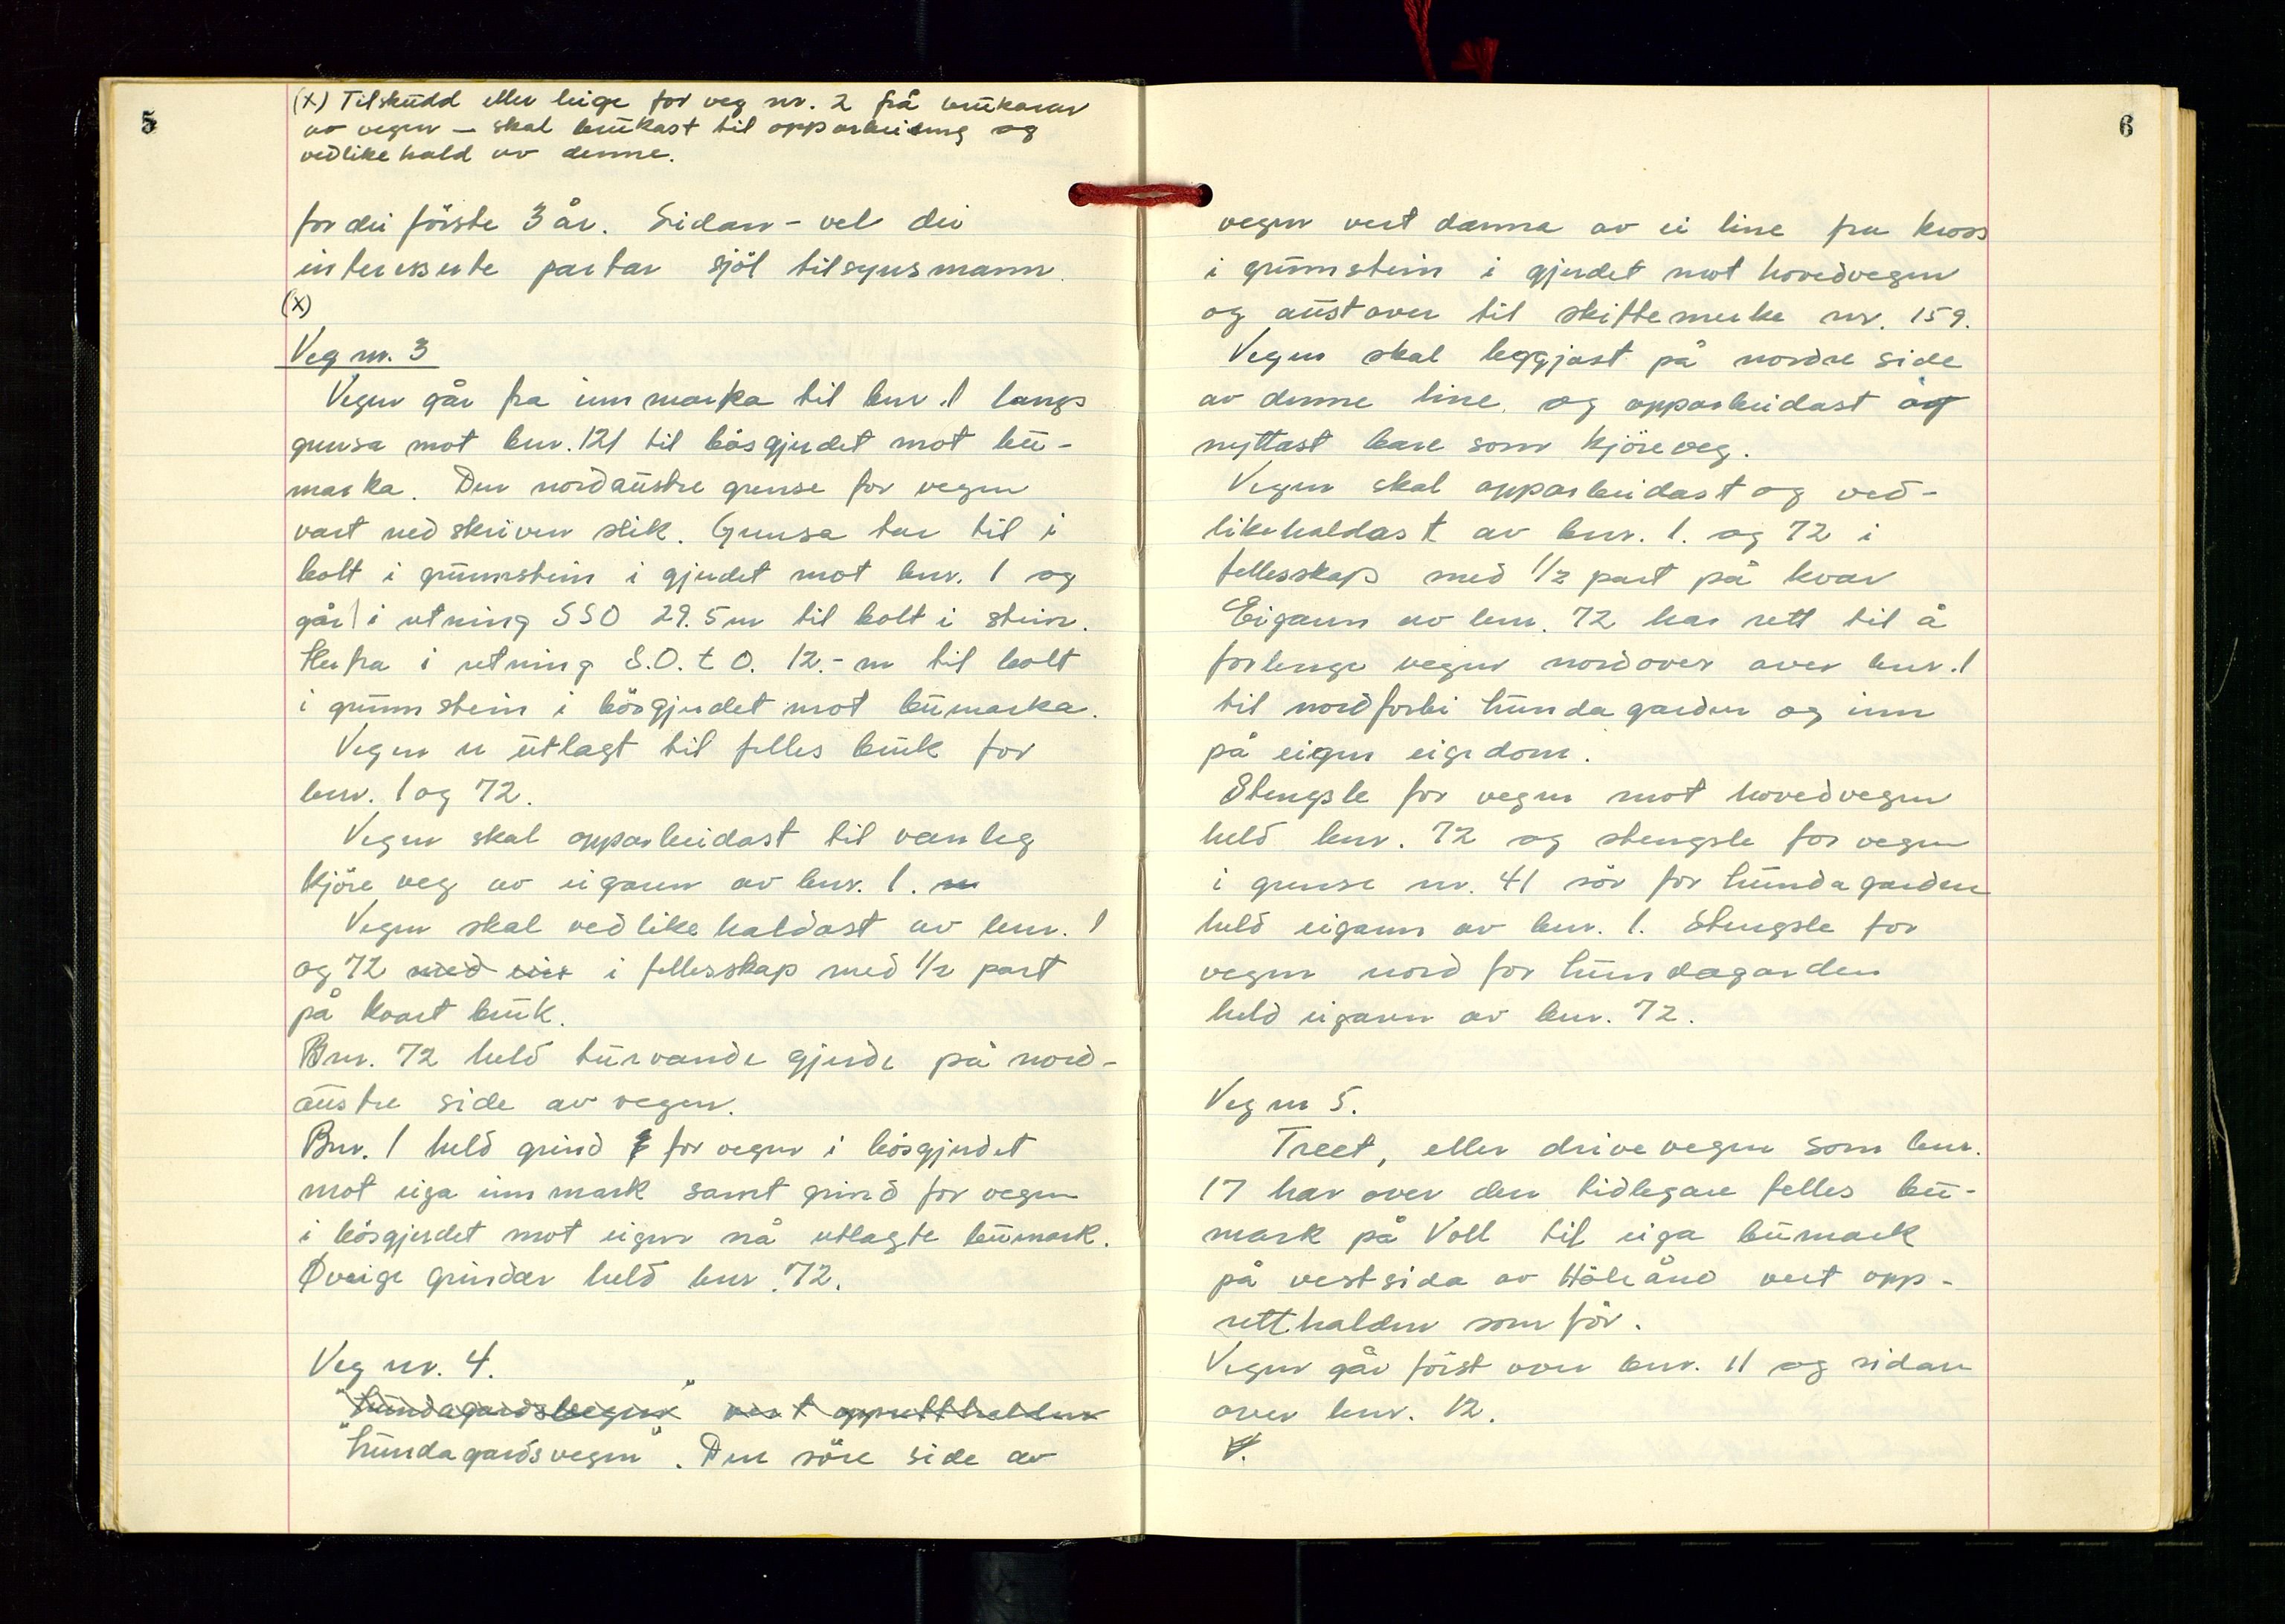 5
(x) Tilskudd eller leige for veg nr. 2 frå brukarar
av vegen – skal brukast til opparbeiding og
vedlikehald av denne.
for dei förste 3 år. Sidan – vel dei
interesserte partar sjöl tilsynsmann.
(x)
Veg nr. 3
Vegen går fra innmarka til bnr. 1 langs
grensa mot bnr. 121 til bösgjerdet mot bu-
marka. Den nordaustre grense for vegen
vart nedskriven slik. Grensa tar til i
bolt i grunnstein i gjerdet mot bnr. 1 og
går i retning SSO 29.5 m til bolt i stein.
Herfra i retning S.O. t O. 12.- m til bolt
i grunnstein i bösgjerdet mot bumarka.
Vegen er utlagt til felles bruk for
bnr. 1 og 72.
Vegen skal opparbeidast til vanleg
kjöreveg av eigaren av bnr. 1.
Vegen skal vedlikehaldast av bnr. 1
og 72 med ein i fellesskap med 1/2 part
på kvart bruk.
Bnr. 72 held turvande gjerde på nord-
austre side av vegen.
Bnr. 1 held grind for vegen i bösgjerdet
mot eiga innmark samt grind for vegen
i bösgjerdet mot eigen nå utlagte bumark.
Øvrige grinder held bnr. 72.
Veg nr. 4.
"Hundagardsvegen" vert oppretthalden
"Hundagardsvegen". Den söre side av
6
vegen vert danna av ei line fra kross
i grunnstein i gjerdet mot hovedvegen
og austover til skiftemerke nr. 159.
Vegen skal leggjast på nordre side
av denne line og opparbeidast og
nyttast bare som kjöreveg.
Vegen skal opparbeidast og ved-
likehaldast av bnr. 1. og 72 i
fellesskap med 1/2 part på kvar
Eigaren av bnr. 72 har rett til å
forlenge vegen nordover over bnr. 1
til nordforbi hundagarden og inn
på eigen eigedom.
Stengsle for vegen mot hovedvegen
held bnr. 72 og stengsle for vegen
i grense nr. 41 sör for hundagarden
held eigaren av bnr. 1. Stengsle for
vegen nord for hundagarden
held eigaren av bnr. 72.
Veg nr 5.
Treet, eller drivevegen som bnr.
17 har over den tidlegare felles bu-
mark på Voll til eiga bumark
på vestsida av Håleånå vert opp-
retthalden som för.
Vegen går först over bnr. 11 og sidan
over bnr. 12.
V.